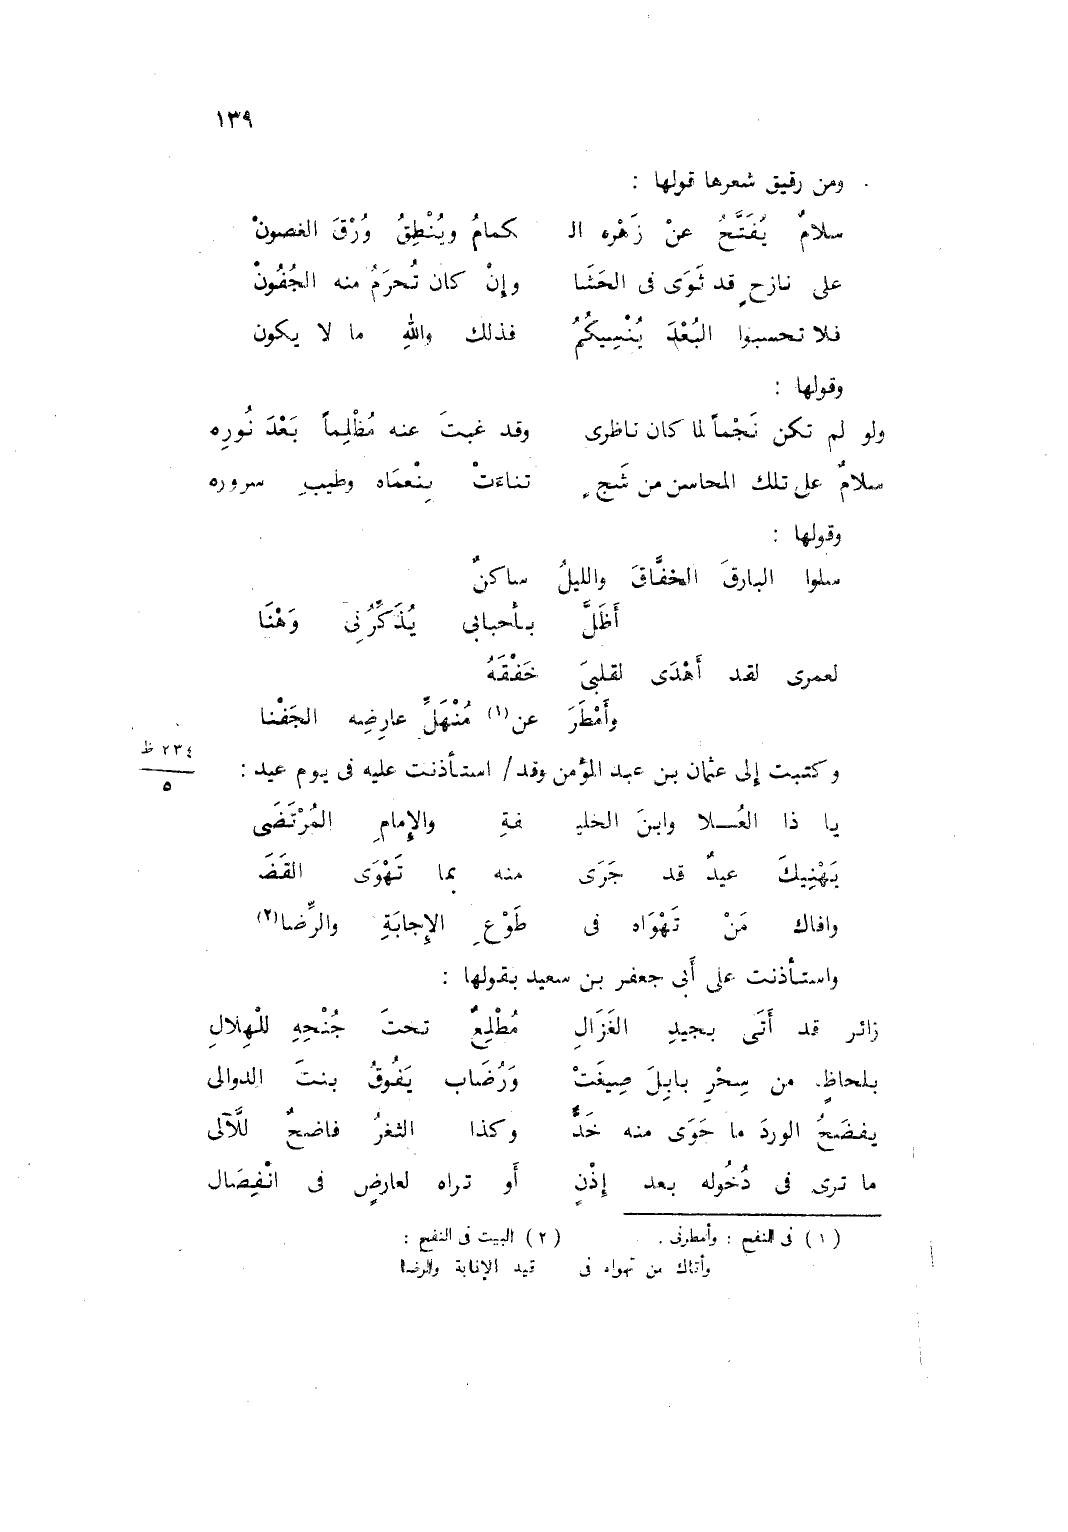 ١٣٩
ومن رقيق شعرها قولها :
سلامٌ يُفَتَّحُ عنْ زَهْره الـ كمامُ ويُنْطِقُ وُرْقَ الغصونْ
على نازحٍ قد ثَوَى فى الحَشَا وإنْ كان تُحرَمُ منه الجُفُونْ
فلا تحسبوا البُعْدَ يُنْسِيكُمُ فذلك واللهِ ما لا يكون
وقولها :
ولو لم تكن نَجْماً لما كان ناظرى وقد غبتَ عنه مُظْلِماً بَعْدَ نُورِه
سلامٌ على تلك المحاسن من شَجٍ تناءَتْ بِنْعمَاه وطيبِ سروره
وقولها :
سلوا البارقَ الخفَّاقَ والليلُ ساكنٌ
أَظَلَّ بأحبابى يُذَكِّرُنِى وَهْنَا
لعمرى لقد أَهْدَى لقلبىَ خَفْقَهُ
وأَمْطَرَ عن(١) مُنْهَلِّ عارضِه الجَفْنا
٢٣٤ ظ
٥
وكتبت إلى عثمان بن عبد المؤمن وقد/ استأذنت عليه فى يوم عيد :
يا ذا العُــلا وابنَ الخليـ ـفةِ والإِمامِ المُرْتَضَى
يَهْنِيكَ عيدٌ قد جَرَى منه بما تَهْوَى القَضَ
وافاك مَنْ تَهْوَاه فى طَوْعِ الإِجابَةِ والرِّضا(٢)
واستأذنت على أَبى جعفر بن سعيد بقولها :
زائر قد أَتَى بجيدِ الغَزَالِ مُطْلِعٌ تحتَ جُنْحِهِ للْهِلالِ
بلحاظٍ من سِحْرِ بابِلَ صِيغَتْ وَرُضَاب يَفُوقُ بنتَ الدوالى
يفضَحُ الوردَ ما حَوَى منه خَدٌّ وكذا الثغرُ فاضحٌ للَّآلى
ما ترى فى دُخُوله بعد إِذْنٍ أَو تراه لعارضٍ فى انْفِصَال
(١) فى النفح : وأمطرنى . (٢) البيت فى النفح :
وأتاك من تهواه فى قيد الإنابة والرضا